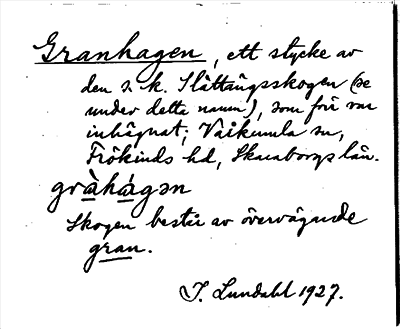 Granhagen, ett stycke av
den s. k. Slättängsskogen (se
under detta namn), som förr var
inhägnat; Vårkumla sn,
Frökinds hd, Skaraborgs län.
gràhágən
Skogen består av övervägande
gran.
I. Lundahl 1927.